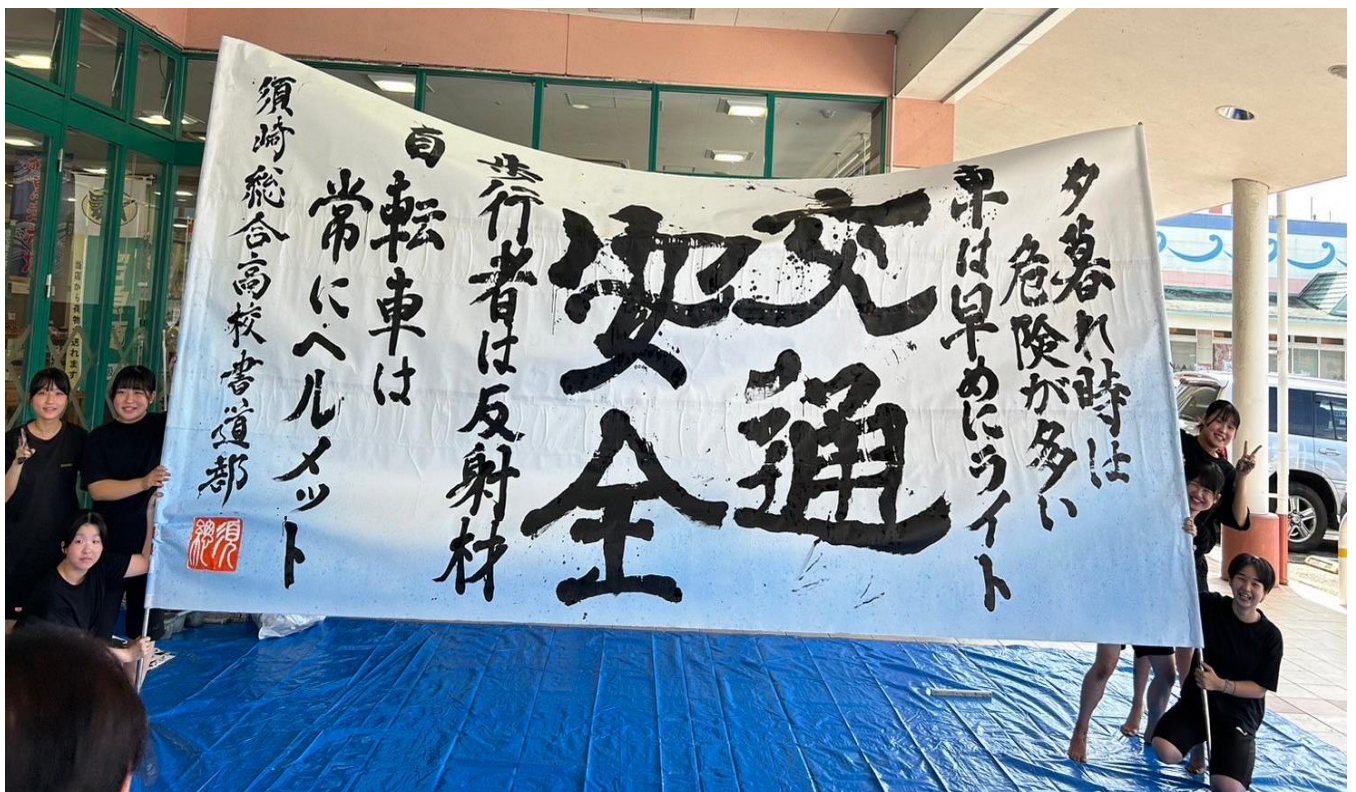 夕暮れ時は
危険が多い
車は早めにライト
交通
安全
歩行者は反射材
自転車は
常にヘルメット
須崎総合高校書道部
須
総
当店から荷物が送れます